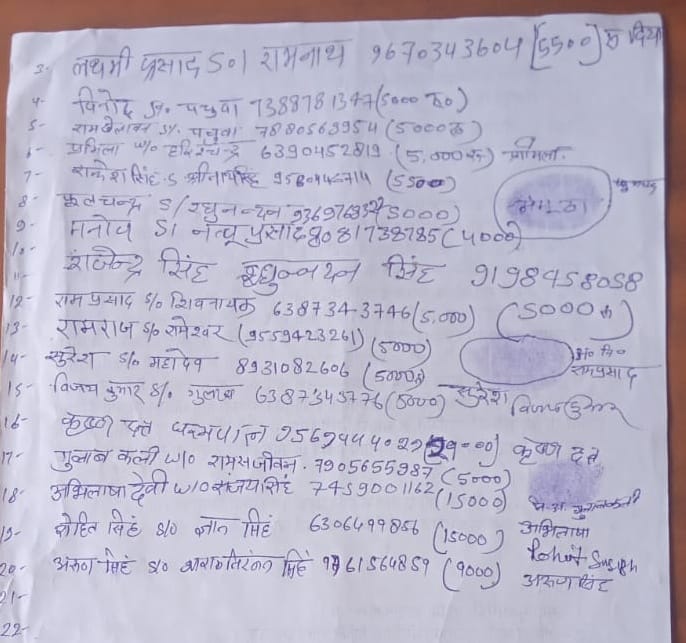 3- लक्ष्मी प्रसाद S०। रामनाथ 9670343604 [5500] रु दिया
4- विनोद S/०. पचुवा 7388781347 (5000 रु०)
5- रामखेलावन S/. पचुवा 7880569954 (5000रु)
6- प्रमिला w/o हरिश्चन्द्र 6390452819. (5,000रु) प्रमिला.
7- राकेश सिंह. S श्रीनाथ सिंह (5500)
8- फूलचन्द्र S/रघुनन्दन (5000)
9- मनोज S। नत्थू प्रसाद 8081738785 (4000)
10-
11- राजेन्द्र सिंह रघुनन्दन सिंह 9198458058
(5000रु)
12- राम प्रसाद s/o शिवनायक 6387343746 (5,000)
13- रामराज s/o रामेश्वर (9559423261) (5000)
रामप्रसाद
14- सुरेश s/o महादेव 8931082606 (5000रु)
15- विजय कुमार S/. गुलाब 6387343776 (5000) सुरेश विजय कुमार
16- कृष्ण दत्त धरमपाल कृष्ण दत्त
17- गुलाब कली w/o रामसजीवन. 7905655987 (5000)
18- अभिलाषा देवी w/o संजय सिंह 7459001162 (15000)
नि.अ. गुलाबकली
19- रोहित सिंह s/o ज्ञान सिंह 6306499856 (15000) अभिलाषा
Rohit Singh
20- अरुण सिंह s/o सिंह (9000) अरूण सिंह
21-
22-